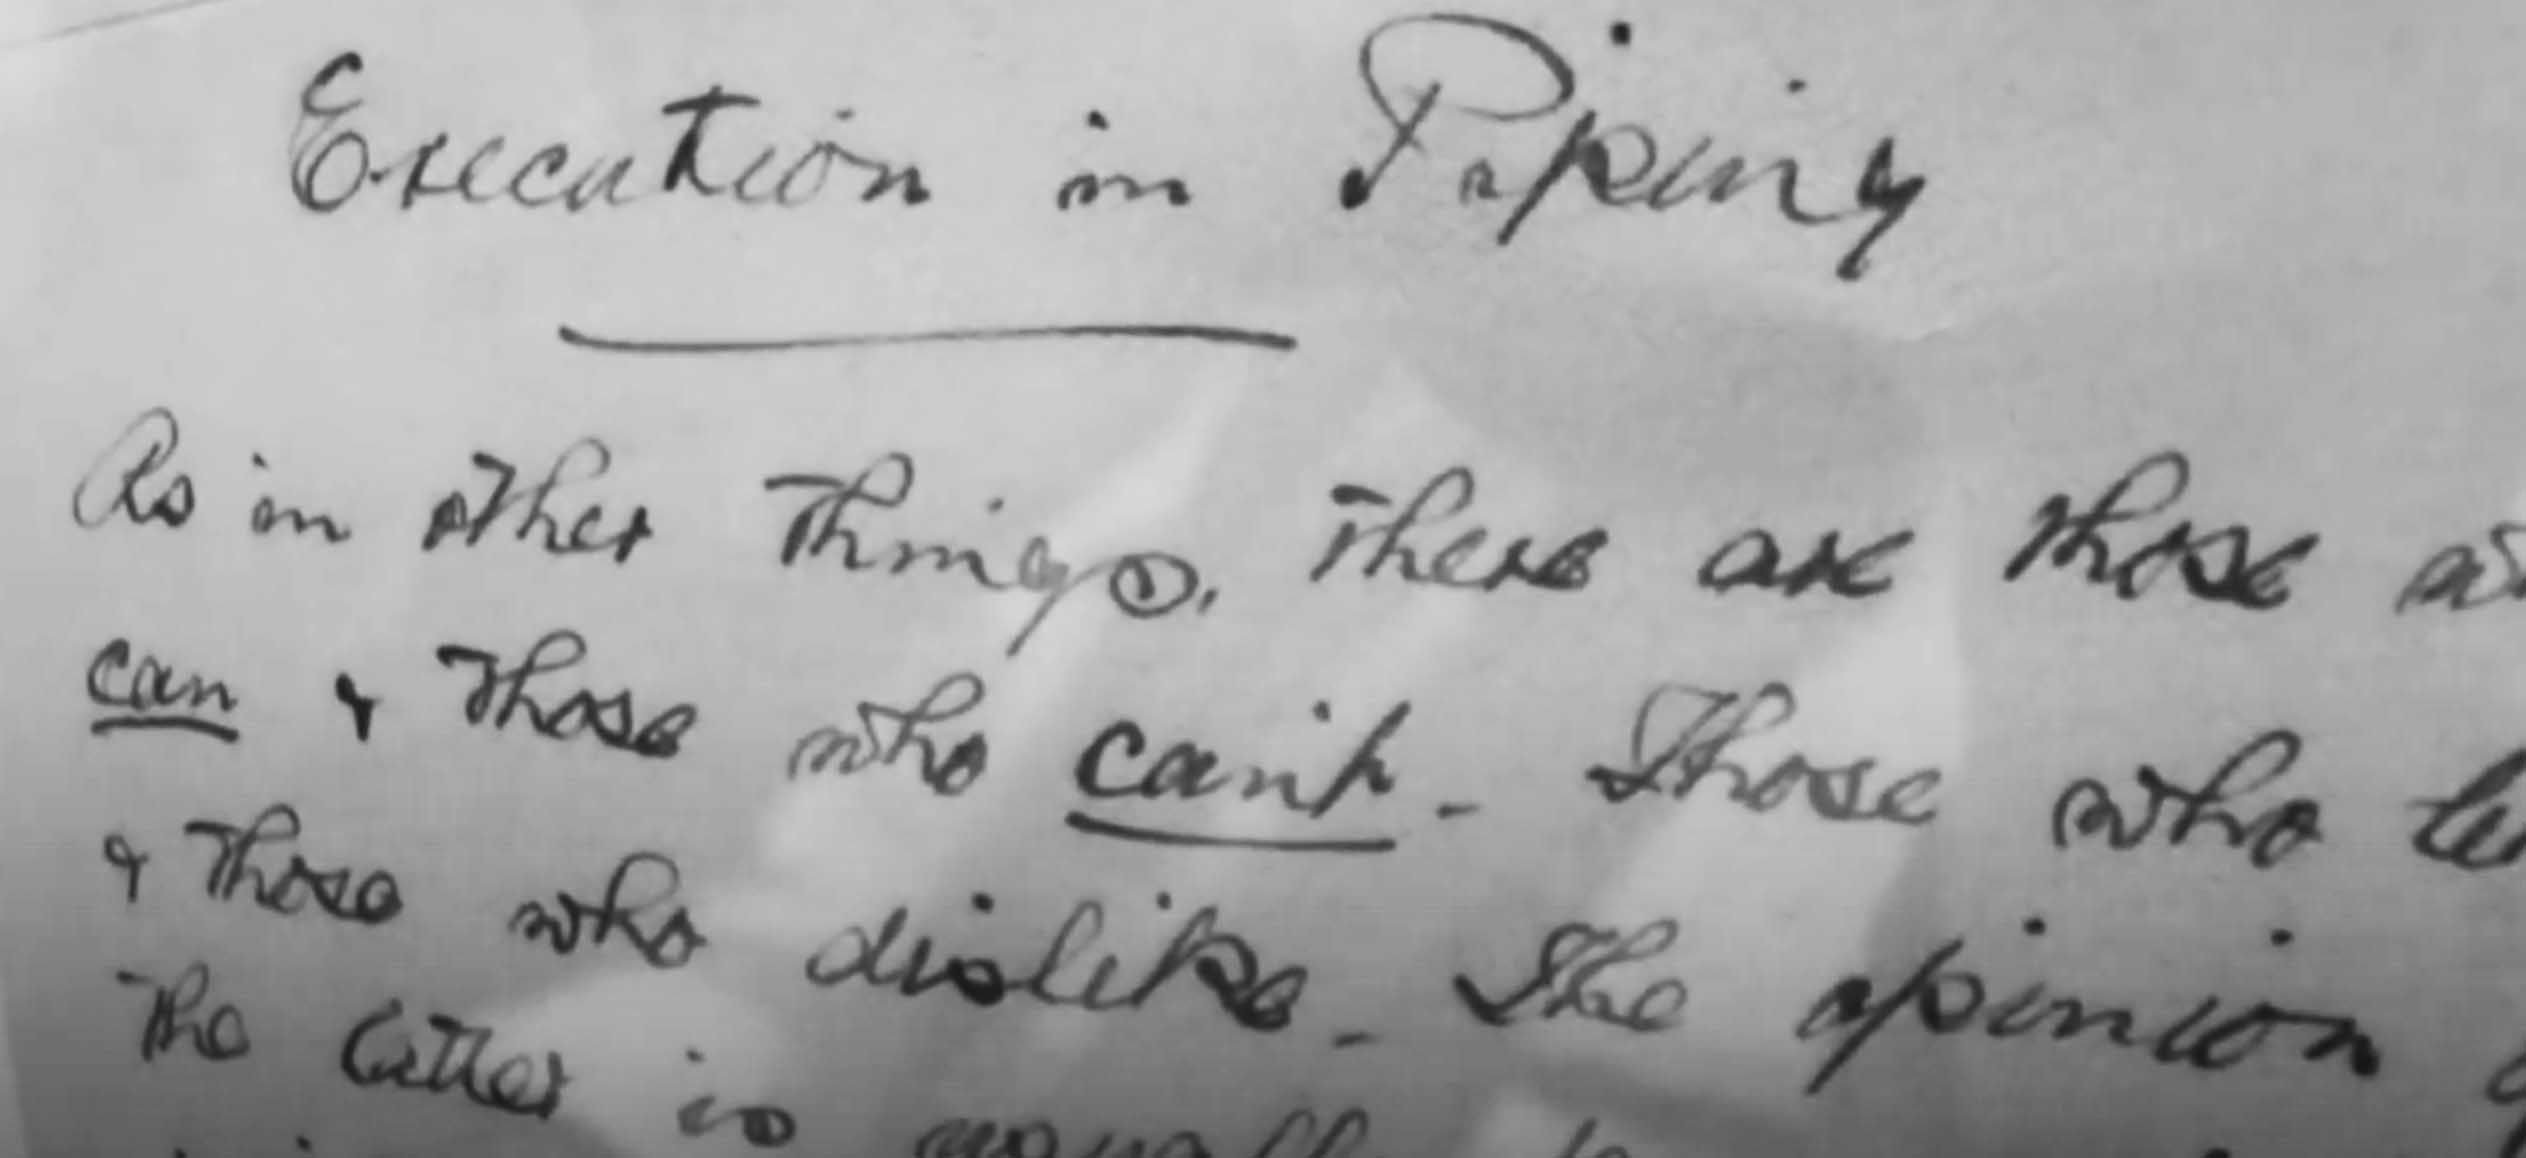 Execution in Piping
As in other things, there are those
can & those who can't - Those who
& those who dislike - The opinion
The latter is usually